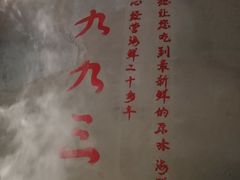 您让您吃到最新鲜的原味海鲜
心经营海鲜二十多年
九九三